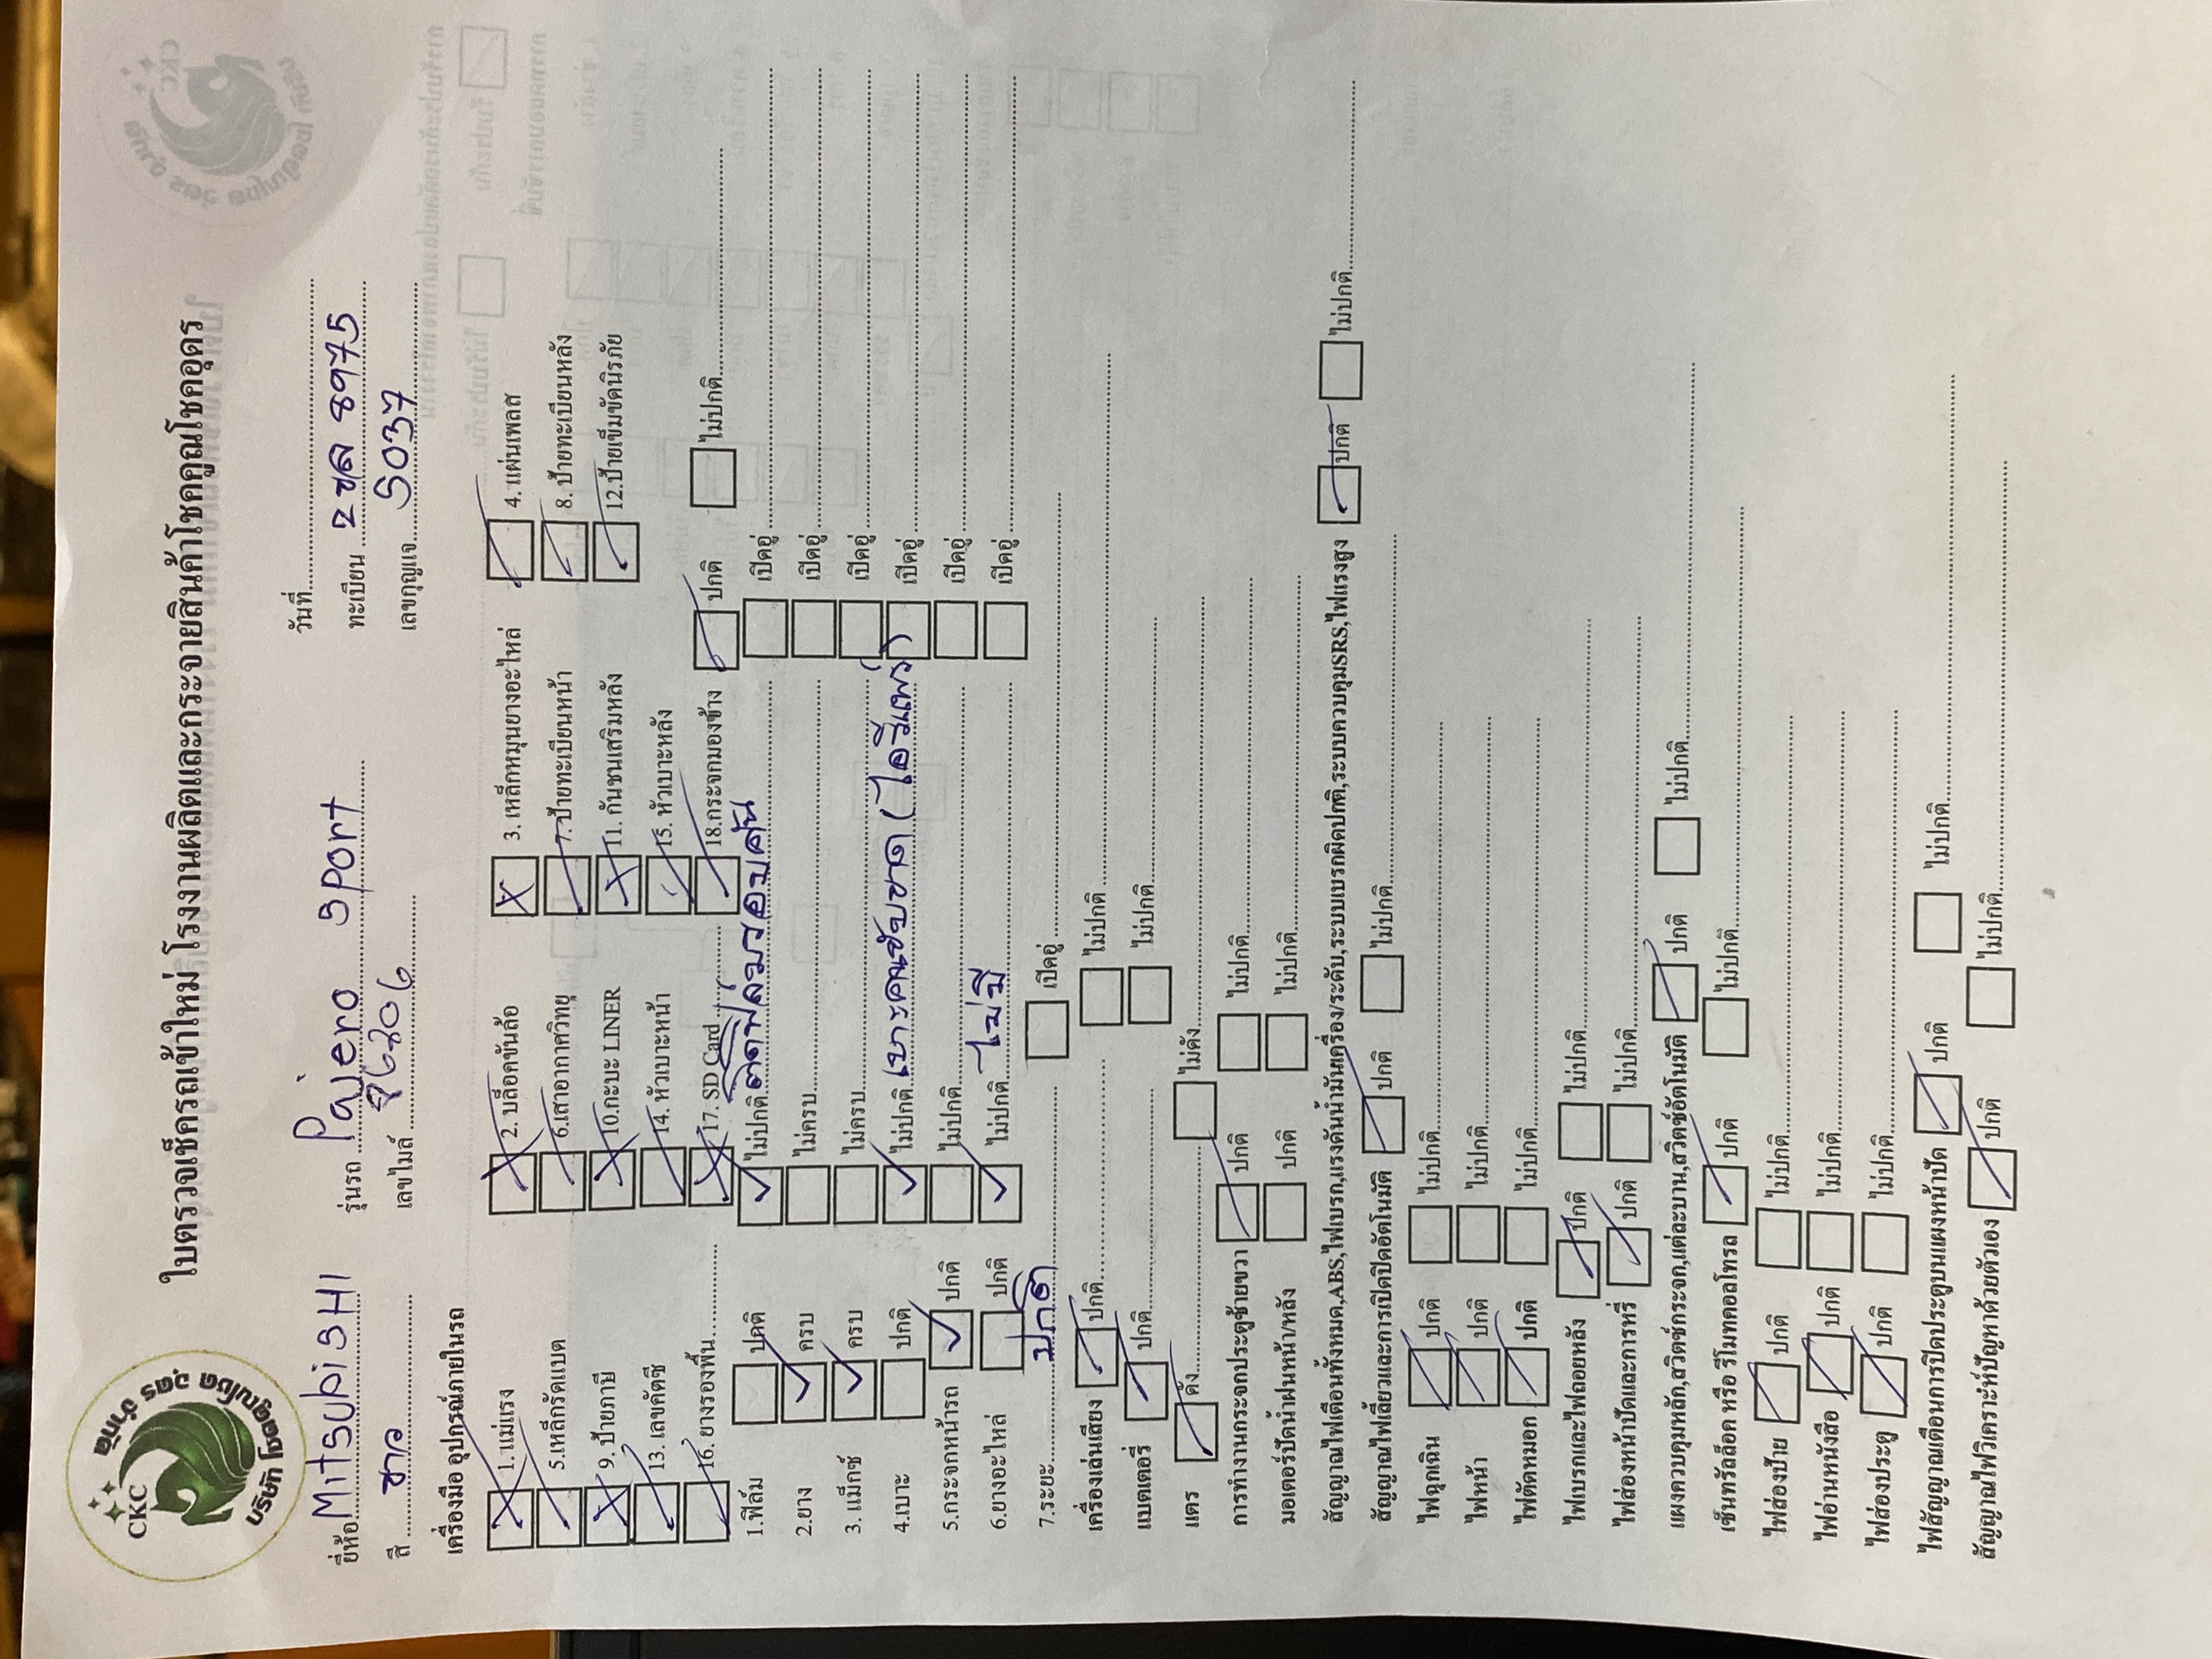 CKC
บริษัท โชคคูณโชค อุดร จำกัด
ใบตรวจเช็ครถเข้าใหม่ โรงงานผลิตและกระจายสินค้าโชคคูณโชคอุดร
วันที่
ยี่ห้อ MITSUBISHI รุ่นรถ Pajero Sport ทะเบียน 2 ขล 8975
สี ขาว เลขไมล์ เลขกุญแจ 5037
เครื่องมือ อุปกรณ์ภายในรถ
1. แม่แรง 2. บล็อคขันล้อ 3. เหล็กหมุนยางอะไหล่ 4. แผ่นเพลส
5.เหล็กรัดแบต 6.เสาอากาศวิทยุ 7.ป้ายทะเบียนหน้า 8. ป้ายทะเบียนหลัง
9. ป้ายภาษี 10.กะบะ LINER 11. กันชนเสริมหลัง 12.ป้ายเข็มขัดนิรภัย
13. เลขคัตซี 14. หัวเบาะหน้า 15. หัวเบาะหลัง
16. ยางรองพื้น 17. SD Card 18.กระจกมองข้าง ปกติ ไม่ปกติ
1.ฟิล์ม ปกติ ไม่ปกติ ติดฟิล์มรอบคัน เปิดอู่
2.ยาง ครบ ไม่ครบ เปิดอู่
3. แม็กซ์ ครบ ไม่ครบ เปิดอู่
4.เบาะ ปกติ ไม่ปกติ เบาะคนขับขาด เปิดอู่
5.กระจกหน้ารถ ปกติ ไม่ปกติ เปิดอู่
6.ยางอะไหล่ ปกติ ไม่ปกติ ไม่มี เปิดอู่
7.ระยะ ปกติ เปิดอู่
เครื่องเล่นเสียง ปกติ ไม่ปกติ
แบตเตอรี่ ปกติ ไม่ปกติ
แตร ดัง ไม่ดัง
การทำงานกระจกประตูซ้ายขวา ปกติ ไม่ปกติ
มอเตอร์ปัดน้ำฝนหน้า/หลัง ปกติ ไม่ปกติ
สัญญาณไฟเตือนทั้งหมด,ABS,ไฟเบรก,แรงดันน้ำมันเครื่อง/ระดับ,ระบบเบรกผิดปกติ,ระบบควบคุมSRS,ไฟแรงสูง ปกติ ไม่ปกติ
สัญญาณไฟเลี้ยวและการเปิดปิดอัตโนมัติ ปกติ ไม่ปกติ
ไฟฉุกเฉิน ปกติ ไม่ปกติ
ไฟหน้า ปกติ ไม่ปกติ
ไฟตัดหมอก ปกติ ไม่ปกติ
ไฟเบรกและไฟถอยหลัง ปกติ ไม่ปกติ
ไฟส่องหน้าปัดและการหรี่ ปกติ ไม่ปกติ
แผงควบคุมหลัก,สวิตช์กระจก,แต่ละบาน,สวิตช์อัตโนมัติ ปกติ ไม่ปกติ
เซ็นทรัลล็อค หรือ รีโมทคอลโทรล ปกติ ไม่ปกติ
ไฟส่องป้าย ปกติ ไม่ปกติ
ไฟอ่านหนังสือ ปกติ ไม่ปกติ
ไฟส่องประตู ปกติ ไม่ปกติ
ไฟสัญญาณเตือนการปิดประตูบนแผงหน้าปัด ปกติ ไม่ปกติ
สัญญาณไฟวิเคราะห์ปัญหาด้วยตัวเอง ปกติ ไม่ปกติ